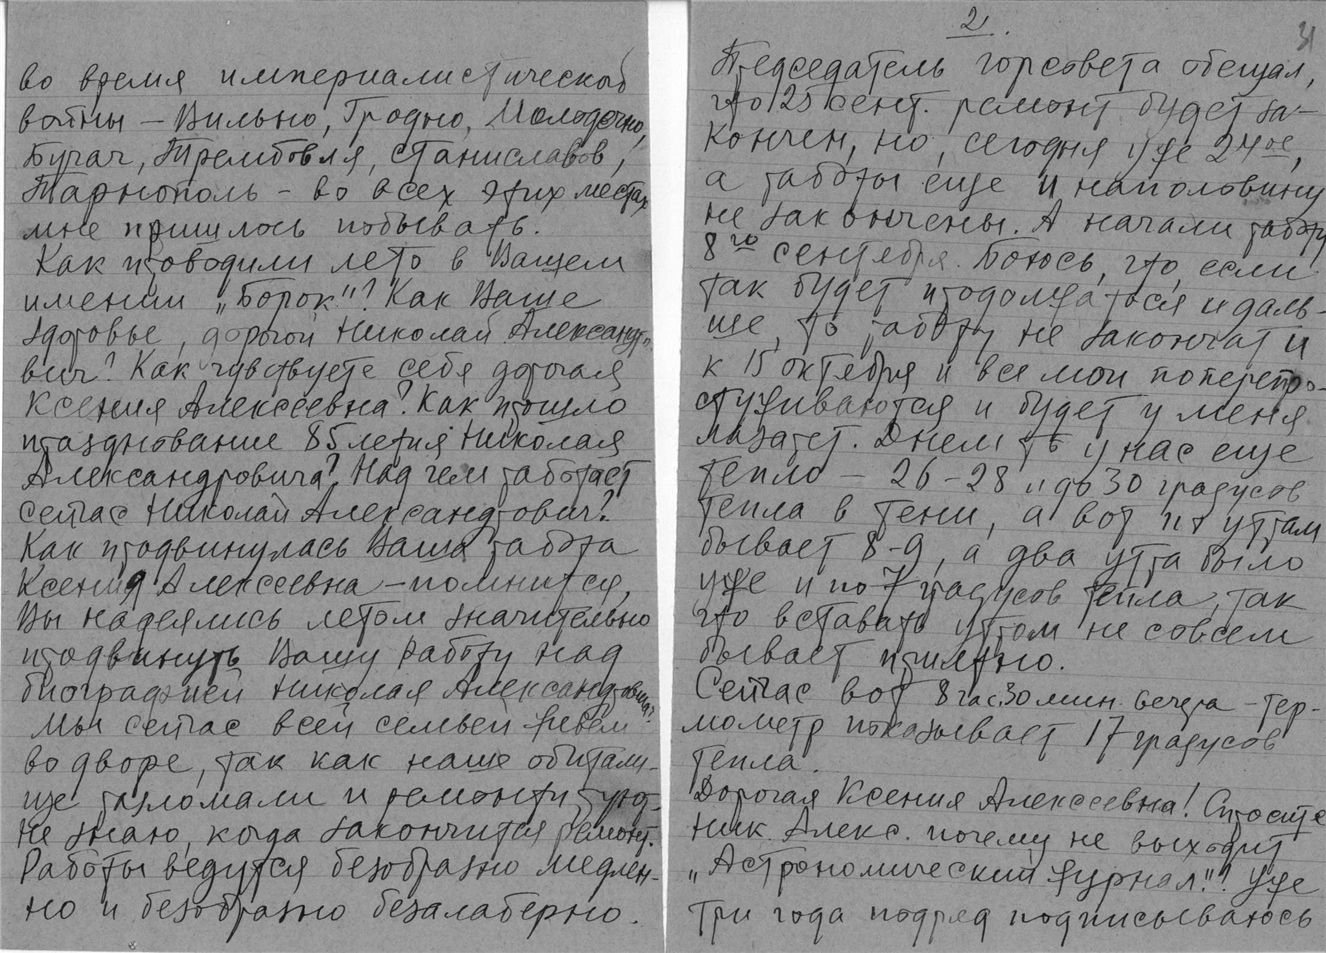 во время империалистической
войны – Вильно, Гродно, Молодечно,
Бучач, Трембовля, Станиславов,
Тарнополь – во всех этих местах
мне пришлось побывать.
Как проводили лето в Вашем
имении „Борок"? Как Ваше
здоровье, дорогой Николай Александро-
вич? Как чувствуете себя дорогая
Ксения Алексеевна? Как прошло
празднование 85 летия Николая
Александровича? Над чем работает
сейчас Николай Александрович?
Как продвинулась Ваша работа
Ксения Алексеевна – помнится,
Вы надеялись летом значительно
продвинуть Вашу работу над
биографией Николая Александровича?
Мы сейчас всей семьей живем
во дворе, так как наше обитали-
ще разломали и ремонтируют–
не знаю, когда закончится ремонт.
Работы ведутся безобразно медлен-
но и безобразно безалаберно.
2.
31
Председатель горсовета обещал,
что 25 сент. ремонт будет за-
кончен, но, сегодня уже 24ое,
а работы еще и наполовину
не закончены. А начали работу
8го сентября. Боюсь, что, если
так будет продолжаться и даль-
ше, то работу не закончат и
к 15 октября и все мои поперепро-
стуживаются и будет у меня
лазарет. Днем то у нас еще
тепло – 26–28 и до 30 градусов
тепла в тени, а вот по утрам
бывает 8–9, а два утра было
уже и по 7 градусов тепла, так
что вставать утром не совсем
бывает приятно.
Сейчас вот 8 час. 30 мин. вечера – тер-
мометр показывает 17 градусов
тепла.
Дорогая Ксения Алексеевна! Спросите
Ник. Алекс. почему не выходит
„Астрономический журнал"? Уже
три года подряд подписываюсь